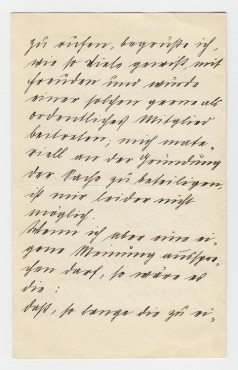 zu rufen, begrüßte ich,
wie so viele gewiß, mit
Freuden und würde
einer solchen gerne als
ordentliches Mitglied
beitreten; mich mate-
riell an der Gründung
der Sache zu beteiligen,
ist mir leider nicht
möglich.
Wenn ich aber eine ei-
gene Meinung ausspre-
chen darf, so wäre es
die:
daß, so lange die zu ei-